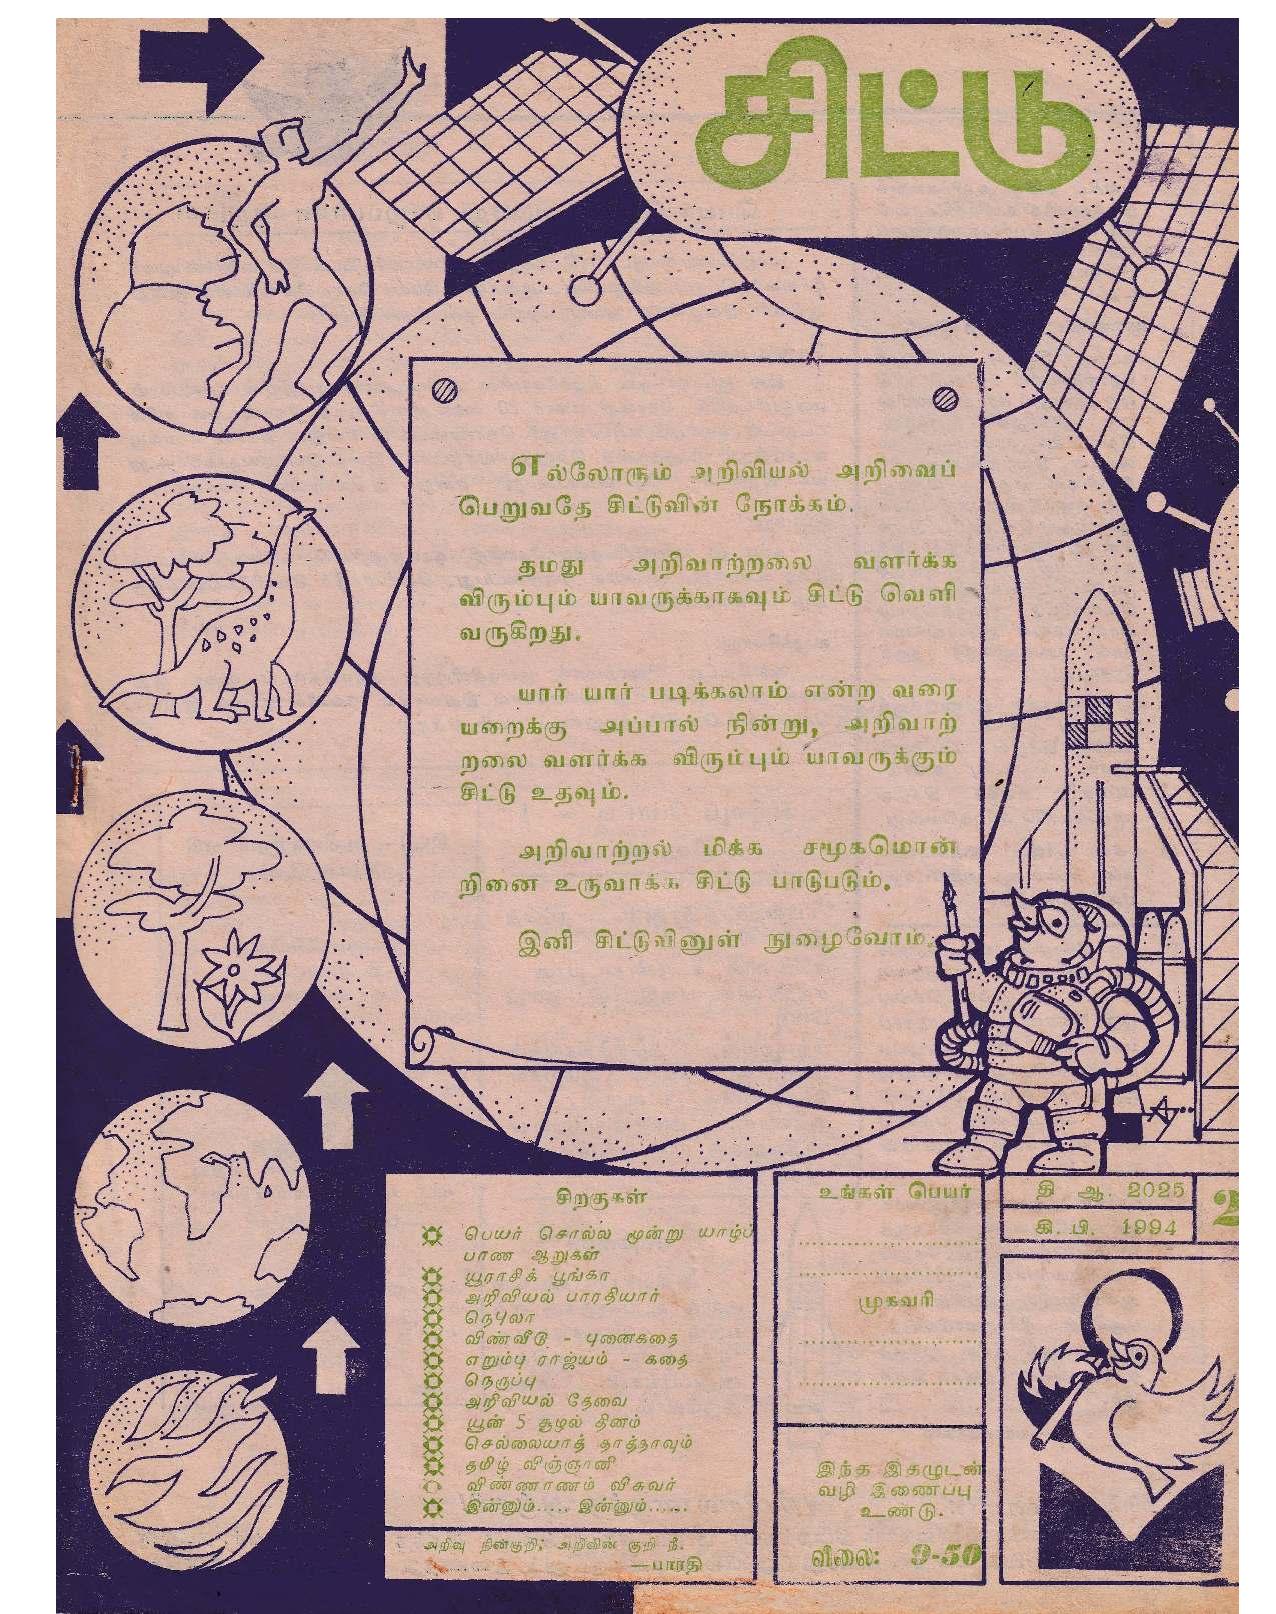 சிட்டு
எல்லோரும் அறிவியல் அறிவைப்
பெறுவதே சிட்டுவின் நோக்கம்.
தமது அறிவாற்றலை வளர்க்க
விரும்பும் யாவருக்காகவும் சிட்டு வெளி
வருகிறது.
யார் யார் படிக்கலாம் என்ற வரை
யறைக்கு அப்பால் நின்று, அறிவாற்
றலை வளர்க்க விரும்பும் யாவருக்கும்
சிட்டு உதவும்.
அறிவாற்றல் மிக்க சமூகமொன்
றினை உருவாக்க சிட்டு பாடுபடும்.
இனி சிட்டுவினுள் நுழைவோம்.
சிறகுகள்
பெயர் சொல்ல மூன்று யாழ்ப்
பாண ஆறுகள்
யூராசிக் பூங்கா
அறிவியல் பாரதியார்
நெபுலா
விண்வீடு - புனைகதை
எறும்பு ராஜ்யம் - கதை
நெருப்பு
அறிவியல் தேவை
யூன் 5 சூழல் தினம்
செல்லையாத் தாத்தாவும்
தமிழ் விஞ்ஞானி
விண்ணாணம் விசுவர்
இன்னும்..... இன்னும்......
அறிவு நின்குறி; அறிவின் குறி நீ.
—பாரதி
உங்கள் பெயர்
முகவரி
இந்த இதழுடன்
வழி இணைப்பு
உண்டு.
விலை: 9-50
தி ஆ. 2025
கி. பி. 1994